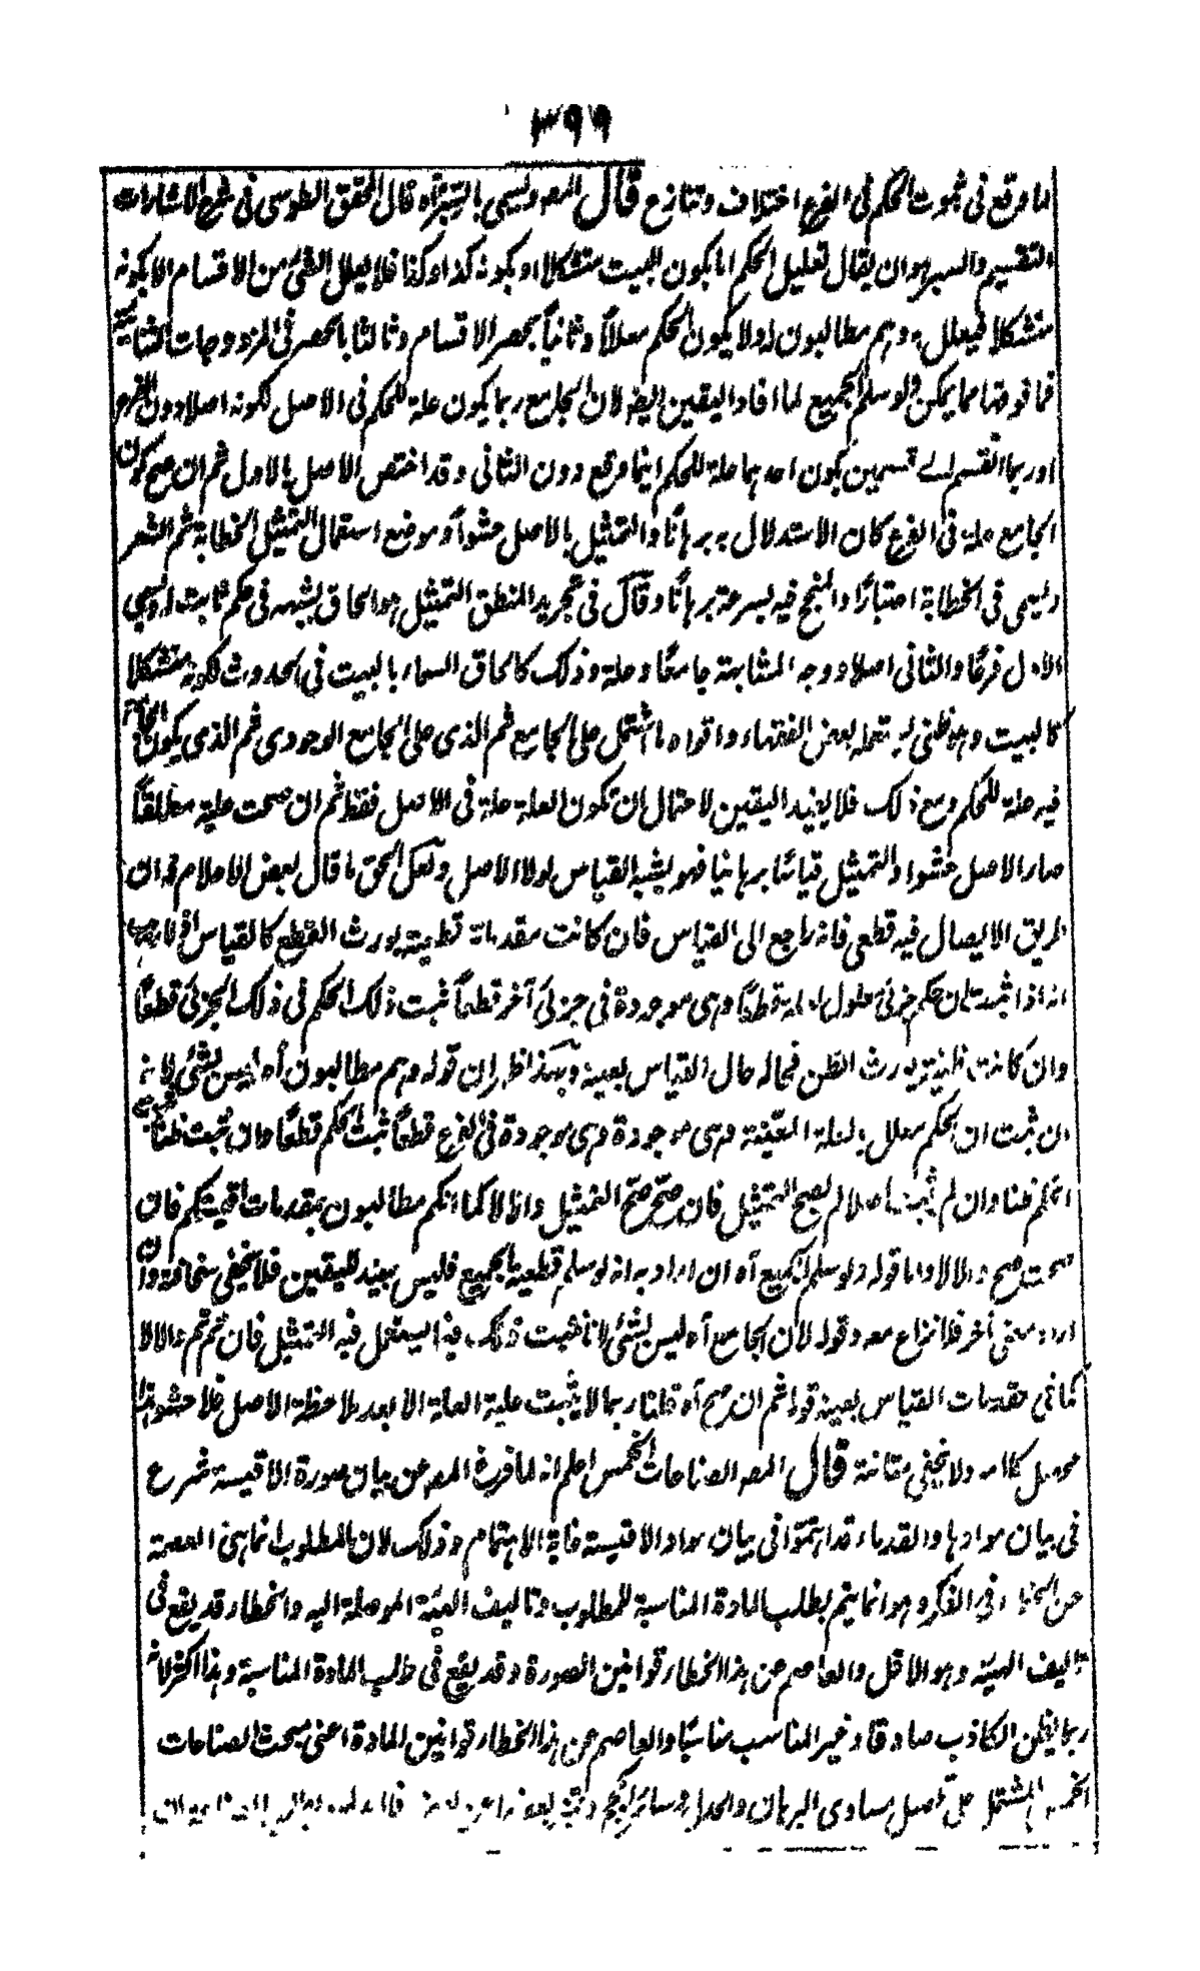 ٣٩٩
لما وقع فى ثبوت الحكم فى الفرع اختلاف وتنازع قال المصـ ويسمى بالسبر آه قال المحقق الطوسى فى شرح الاشارات
التقسيم والسبر هو ان يقال تعليل الحكم اما بكون البيت متشكلا او بكونه كذا وكذا فلا يعلل الشئ من الاقسام الا بكونه
متشكلا فيعلل به وهم مطالبون اولا بكون الحكم معللا وثانياً بحصر الاقسام وثالثا بالحصر فى المزدوجات الثنائية
فما فوقها مما يمكن ولو سلم الجميع لما افاد اليقين ايضا لان الجامع ربما يكون علة للحكم فى الاصل لكونه اصلا دون الفرع
او ربما انقسم الے قسمين يكون احدهما علة للحكم اينما وقع دون الثانى وقد اختص الاصل بالاول ثم ان صح كون
الجامع علة فى الفرع كان الاستدلال به برهانًا والتمثيل بالاصل حشواً وموضع استعمال التمثيل الخطابة ثم الشعر
ويسمى فى الخطابة اعتبارًا والمنجح فيه بسرعة برهانًا وقال فى تجريد المنطق التمثيل هو الحاق بشبهه فى حكم ثابت له ويسمى
الاول فرعًا والثانى اصلا ووجه المشابهة جامعًا وعلة وذلك كالحاق السماء بالبيت فى الحدوث لكونه متشكلا
كالبيت وهو ظنى يستعمله بعض الفقهاء واقواه ما اشتمل على الجامع ثم الذى على الجامع الوجودى ثم الذى يكون الجامع
فيه علة للحكم ومع ذلك فلا يفيد اليقين لاحتمال ان تكون العلة علة فى الاصل فقط ثم ان صحت علية مطلقاً
صار الاصل حشوا والتمثيل قياسًا برهانيا فهو يشبه القياس لولا الاصل ولعل الحق ما قال بعض الاعلام قد ان
طريق الايصال فيه قطعى فانه راجع الى القياس فان كانت مقدماته قطعية يورث القطع كالقياس
انه اذا ثبت ان حكم جزئى معلول لعلة قطعًا وهى موجودة فى جزئى آخر قطعاً ثبت ذلك الحكم فى ذلك الجزئى قطعًا
وان كانت ظنية يورث الظن فحاله حال القياس بعينه وبهذا ظهر ان قوله وهم مطالبون آه ليس بشئ لانه
ان ثبت ان الحكم معلل بالعلة المعينة وهى موجودة وهى موجودة فى الفرع قطعاً ثبت الحكم قطعًا وان ثبت ظناً
الحكم ظنا وان لم يثبت اصلا لم يصح التمثيل فان صحّ صحّ التمثيل والا لا كما انكم مطالبون بمقدمات اقيستكم فان
صحت صح والا لا واما قوله ولو سلم الجميع آه ان اراد به انه لو سلم قطعية الجميع فليس بمفيد لليقين فلا يخفى سخافته وان
اراد معنى آخر فلا نزاع معه وقوله لان الجامع آه ليس بشئ لانا نثبت ذلك فيما يستعمل فيه التمثيل فان تم تم والا لا
كما فى مقدمات القياس بعينه قوله ثم ان صح آه قلنا ربما لا يثبت علية العلة الا بعد ملاحظة الاصل فلا حشو هذا
محصل كلامه ولا يخفى متانته قال المصـ الصناعات الخمس اعلم انه لما فرغ المصـ عن بيان صورة الاقيسة شرع
فى بيان موادها والقدماء قد اهتموا فى بيان مواد الاقيسة غاية الاهتمام وذلك لان المطلوب انما هى العصمة
عن الخطاء فى الفكر وهو انما يتم بطلب المادة المناسبة للمطلوب وتاليف الهيئة الموصلة اليه والخطاء قد يقع فى
تاليف الهيئة وهو الاقل والعاصم عن هذا الخطاء قوانين الصورة وقد يقع فى طلب المادة المناسبة وهذا اكثر لانه
ربما يظن الكاذب صادقا وغير المناسب مناسبًا والعاصم عن هذا الخطاء قوانين المادة اعنى مبحث الصناعات
الخمسة المشتمل على تحصيل مبادى البرهان والجدل وسائر الحجج